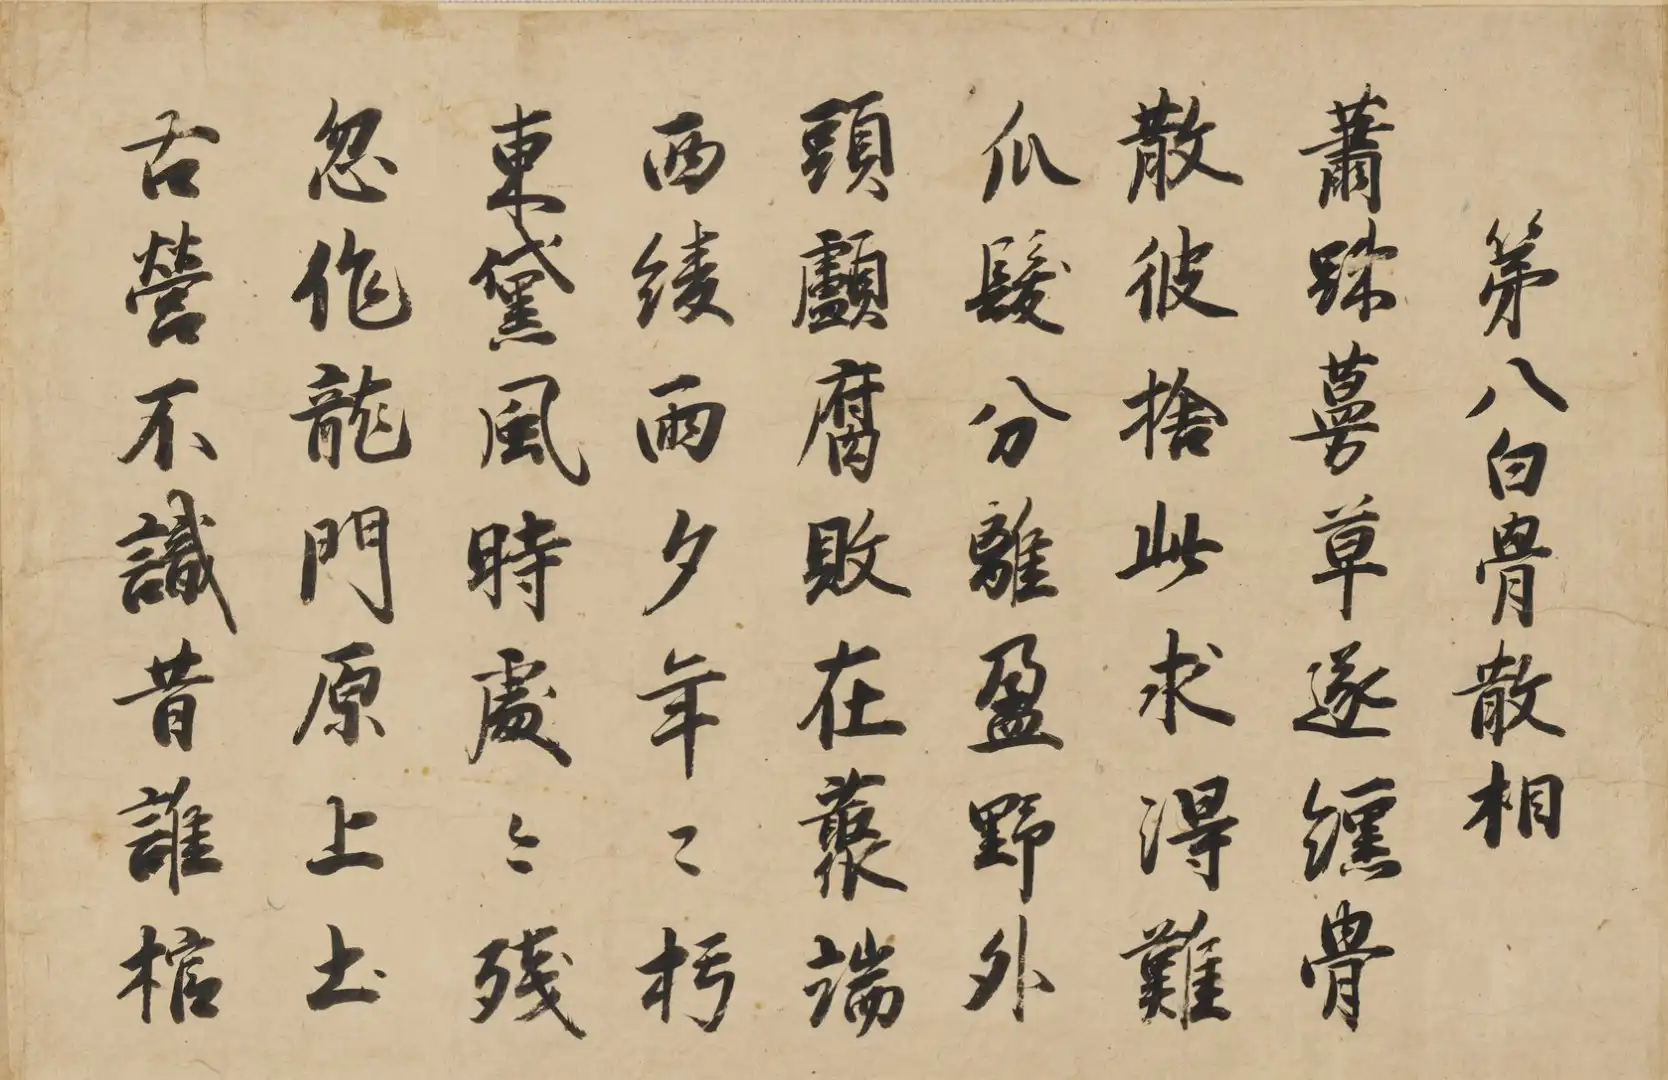 第八白骨散相
蕭踈蔓草遂纏骨
散彼捨此求得難
爪髪分離盈野外
頭顱腐敗在藂端
西綾雨夕年〻朽
東黛風時處〻殘
忽作龍門原上土
古營不識昔誰棺